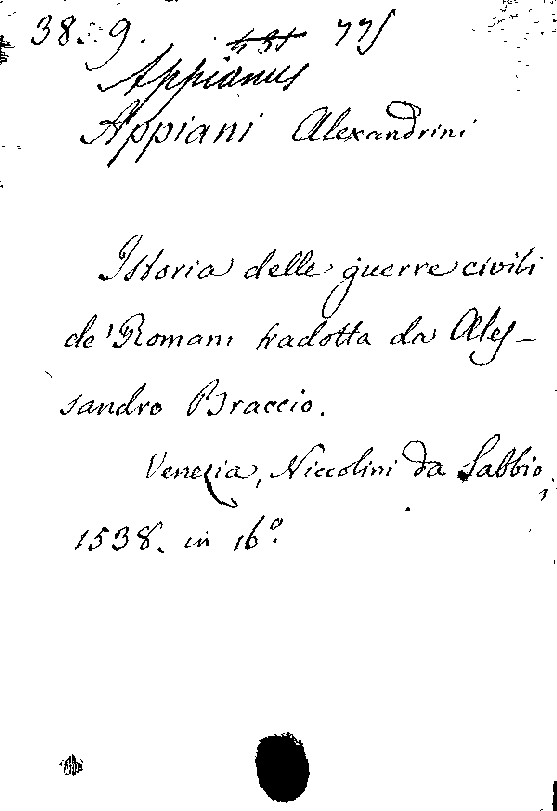 38. 9. 775
Appianus
Appiani Alexandrini
Istoria delle guerre civili
de' Romani tradotta da Ales-
sandro Braccio.
Venezia, Niccolini da Sabbio,
1538. in 16º.